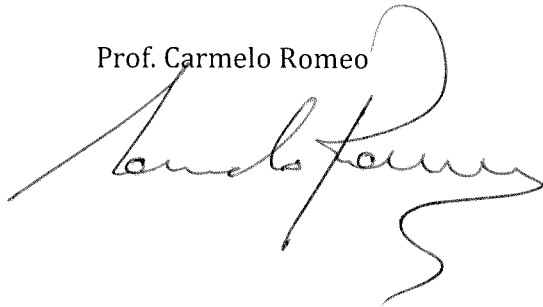 Prof. Carmelo Romeo
Carmelo Romeo